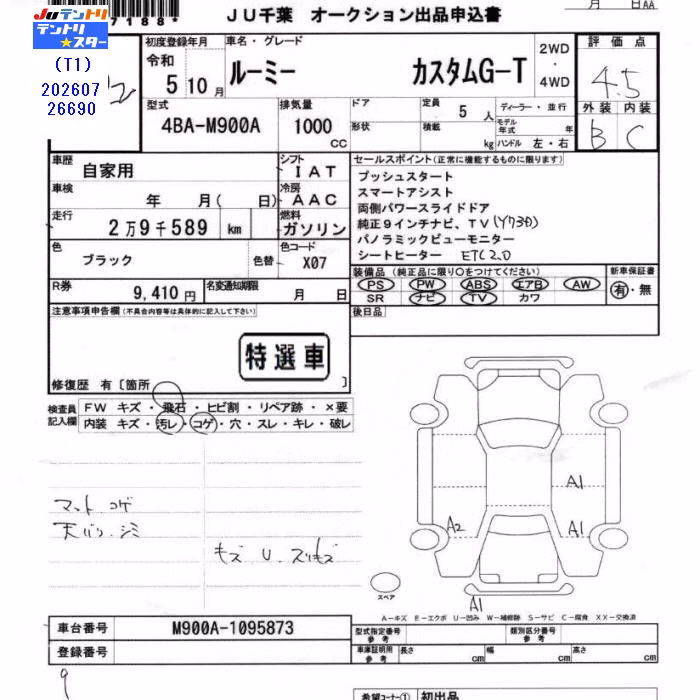 7188*
JU千葉 オークション出品申込書
月 日AA
JUテントリ
テントリ
★スター
(T1)
202607
26690
初度登録年月
車名・グレード
令和
5 10月
ルーミー カスタムG-T
2WD
・
4WD
評価点
4.5
外装 内装
B C
型式
4BA-M900A
排気量
1000
CC
ドア
形状
定員
5人
積載
kg
ディーラー・並行
モデル年式 年
ハンドル 左・右
車歴
自家用
シフト
IAT
車検
年 月( 日)
冷房
AAC
走行
2万9千589 km
燃料
ガソリン
色
ブラック
色替
色コード
X07
R券
9,410円
名変通知期限
月 日
セールスポイント(正常に機能するものに限ります)
プッシュスタート
スマートアシスト
両側パワースライドドア
純正9インチナビ、TV
パノラミックビューモニター
シートヒーター ETC2.0
装備品(純正品に限り○をつけてください)
PS PW ABS エアB AW
SR ナビ TV カワ
新車保証書
有・無
後日品
注意事項申告欄(不具合内容等は具体的に記入して下さい)
特選車
修復歴 有〔箇所 〕
検査員
記入欄
FW キズ・飛石・ヒビ割・リペア跡・×要
内装 キズ・汚レ・コゲ・穴・スレ・キレ・破レ
マット コゲ
天バリ シミ
キズ U スリキズ
A2
A1
A1
A1
スペア
A-キズ E-エクボ U-凹み W-補修跡 S-サビ C-腐食 XX-交換済
車台番号
M900A-1095873
登録番号
型式指定番号
参考
類別区分番号
参考
車庫証明用
参考
長さ cm
幅 cm
高さ cm
9
希望コーナー① 初出品